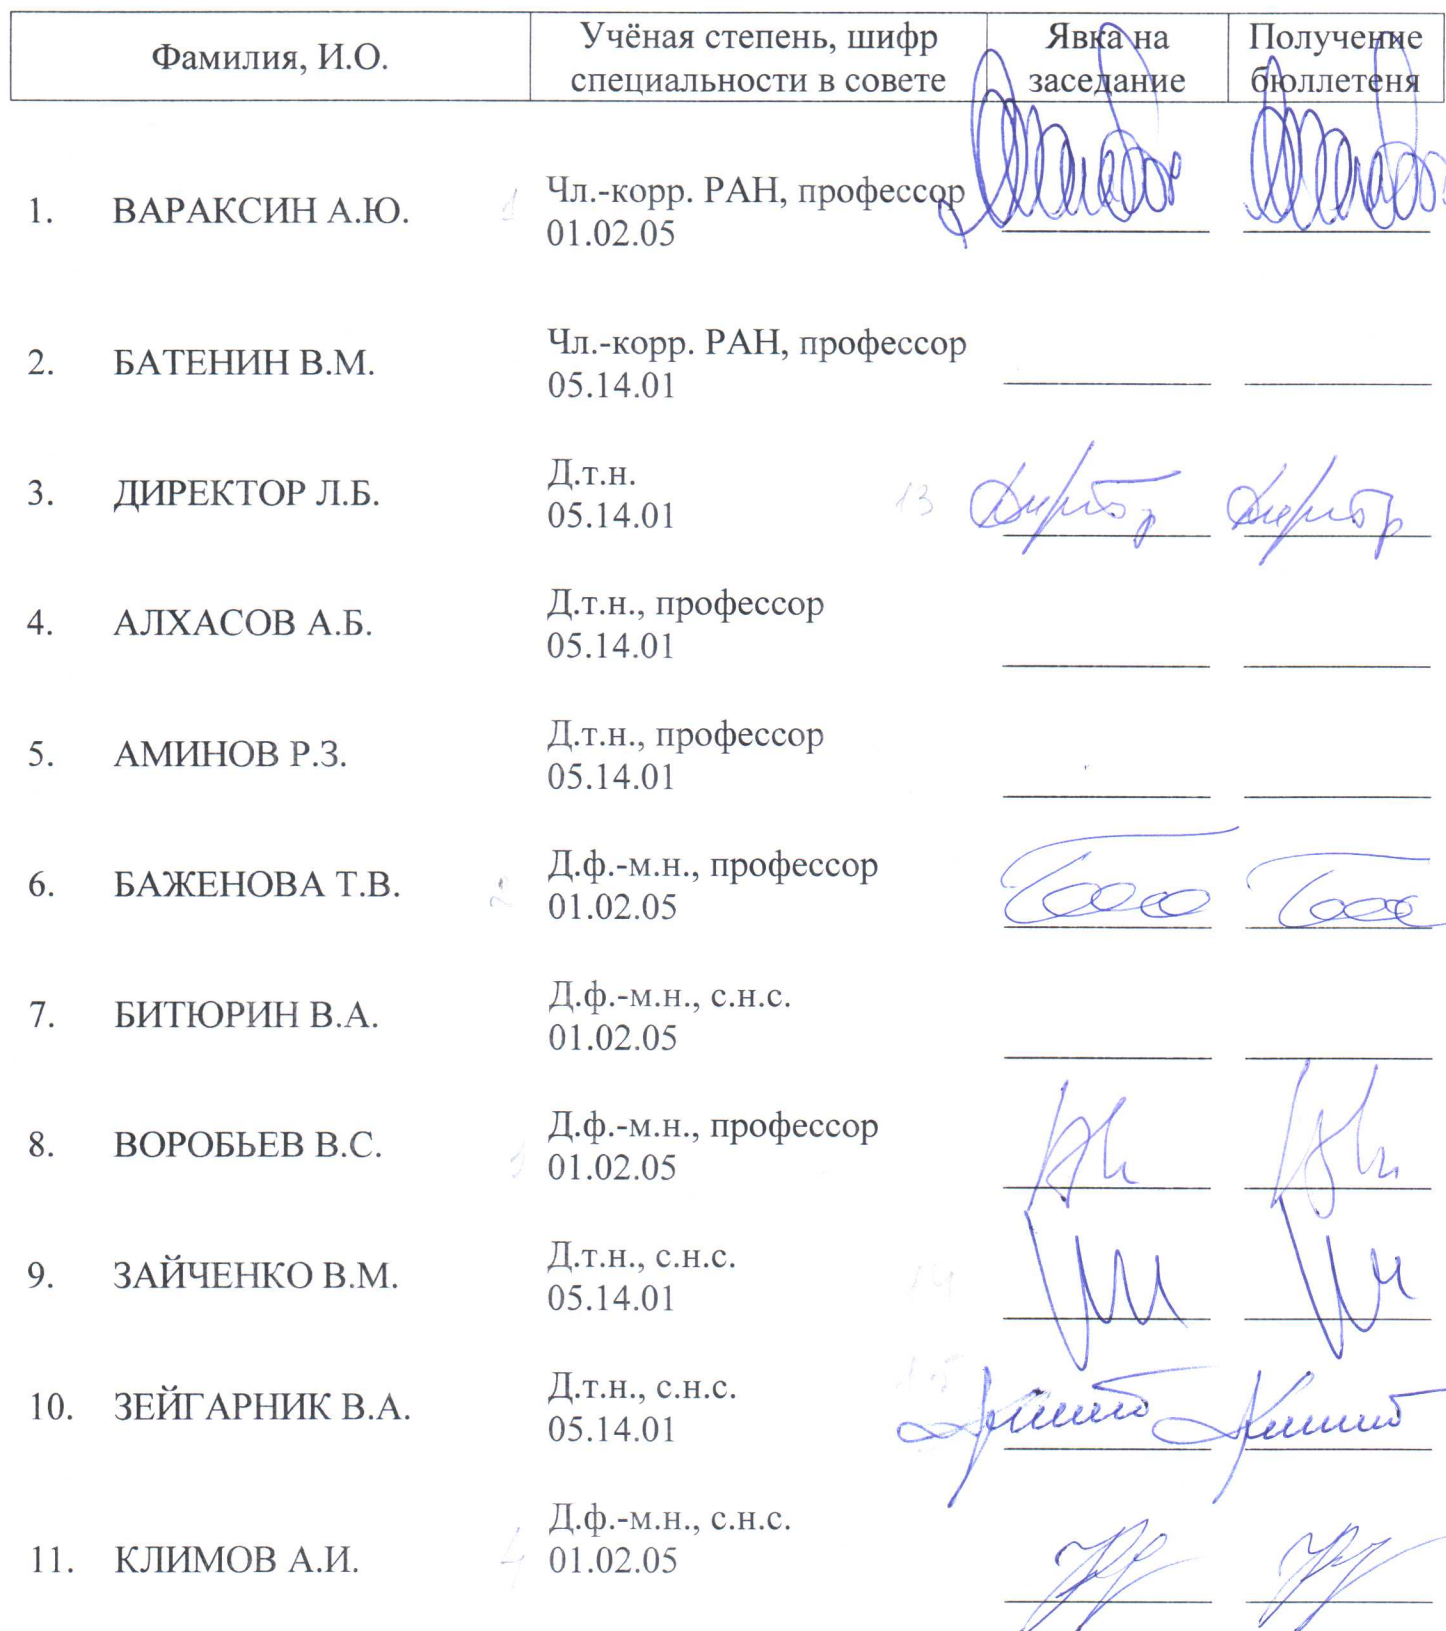 Фамилия, И.О.
Учёная степень, шифр
специальности в совете
Явка на
заседание
Получение
бюллетеня
1. ВАРАКСИН А.Ю.
Чл.-корр. РАН, профессор
01.02.05
2. БАТЕНИН В.М.
Чл.-корр. РАН, профессор
05.14.01
3. ДИРЕКТОР Л.Б.
Д.т.н.
05.14.01
13
4. АЛХАСОВ А.Б.
Д.т.н., профессор
05.14.01
5. АМИНОВ Р.З.
Д.т.н., профессор
05.14.01
6. БАЖЕНОВА Т.В.
2
Д.ф.-м.н., профессор
01.02.05
7. БИТЮРИН В.А.
Д.ф.-м.н., с.н.с.
01.02.05
8. ВОРОБЬЕВ В.С.
3
Д.ф.-м.н., профессор
01.02.05
9. ЗАЙЧЕНКО В.М.
Д.т.н., с.н.с.
05.14.01
14
10. ЗЕЙГАРНИК В.А.
Д.т.н., с.н.с.
05.14.01
15
11. КЛИМОВ А.И.
4
Д.ф.-м.н., с.н.с.
01.02.05